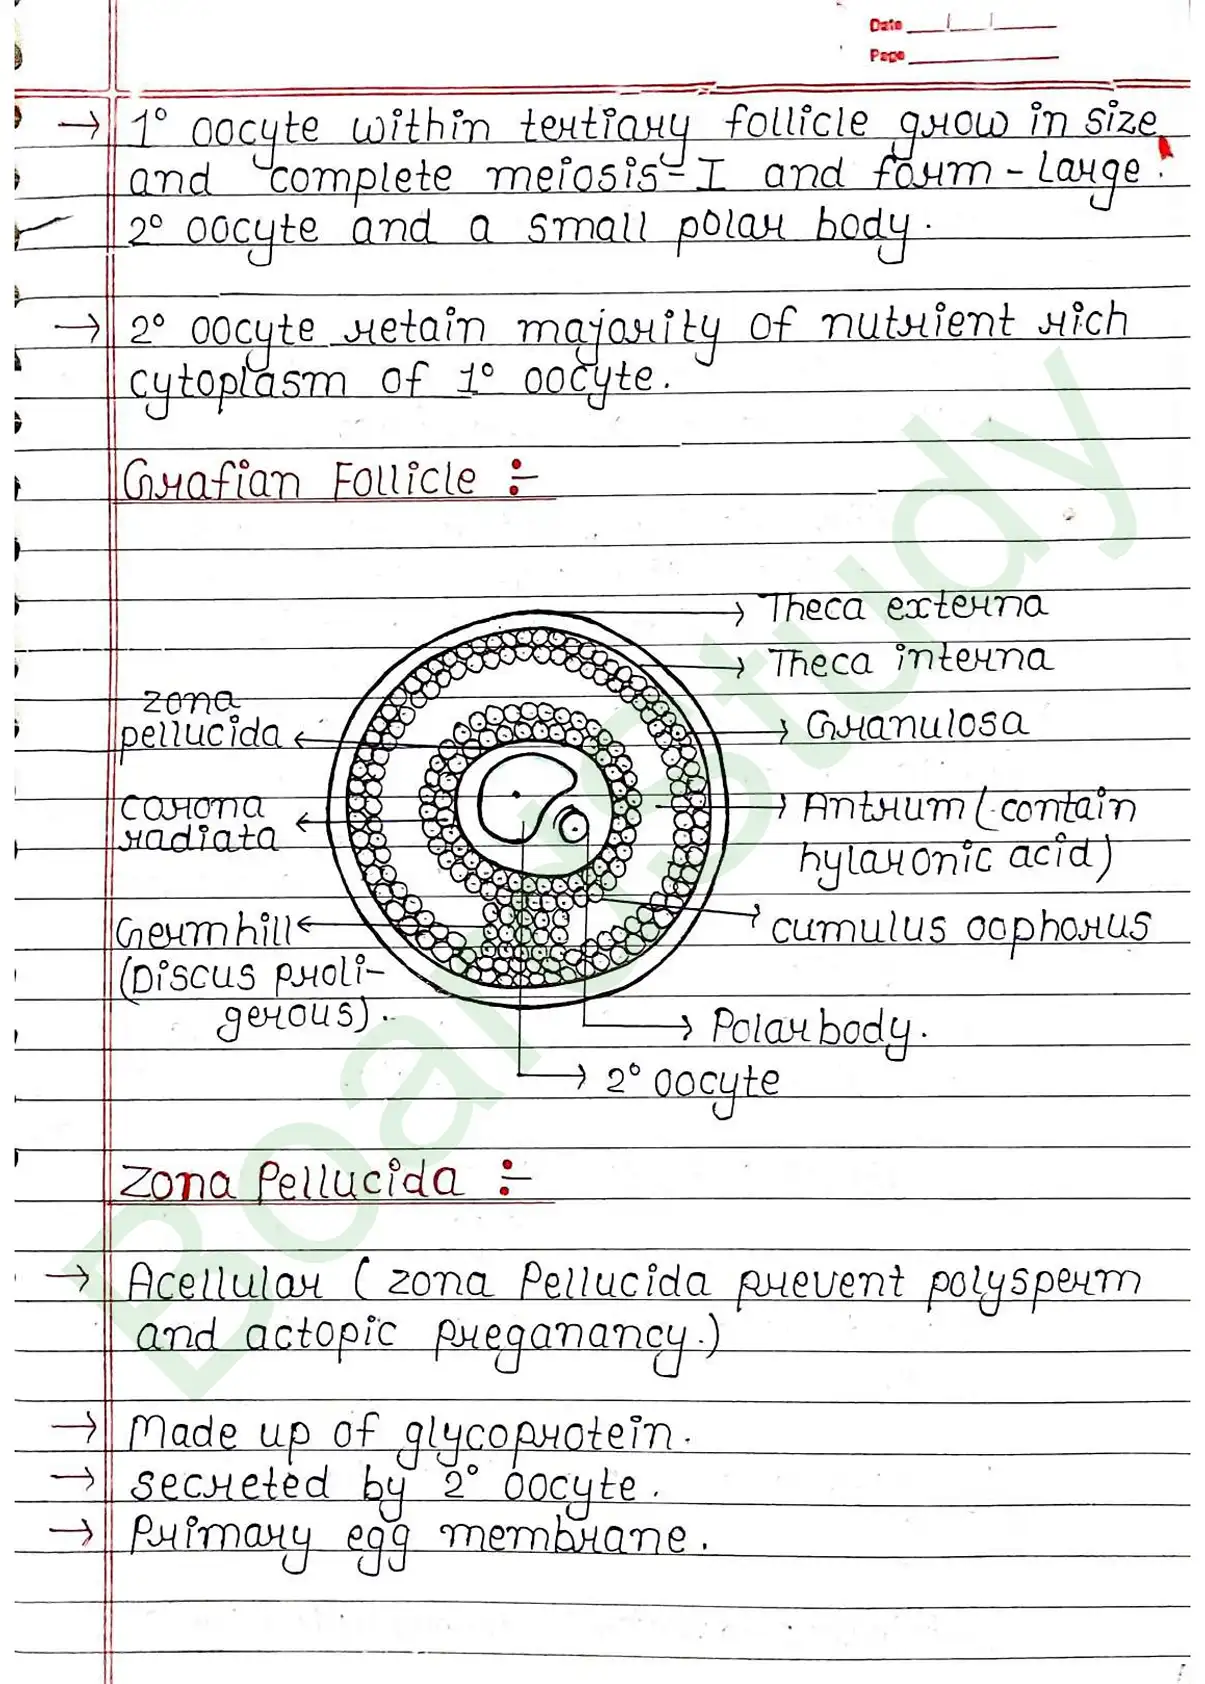 Date
Page
→ 1° oocyte within tertiary follicle grow in size
and complete meiosis-I and form - Large
2° oocyte and a small polar body.
→ 2° oocyte retain majority of nutrient rich
cytoplasm of 1° oocyte.
Grafian Follicle :-
Theca externa
Theca interna
zona
pellucida
Granulosa
corona
radiata
Antrum (contain
hylaronic acid)
Germhill
(Discus proli-
gerous).
cumulus oophorus
Polar body.
2° oocyte
Zona Pellucida :-
→ Acellular ( zona Pellucida prevent polysperm
and actopic preganancy.)
→ Made up of glycoprotein.
→ secreted by 2° oocyte.
→ Primary egg membrane.
BoardStudy